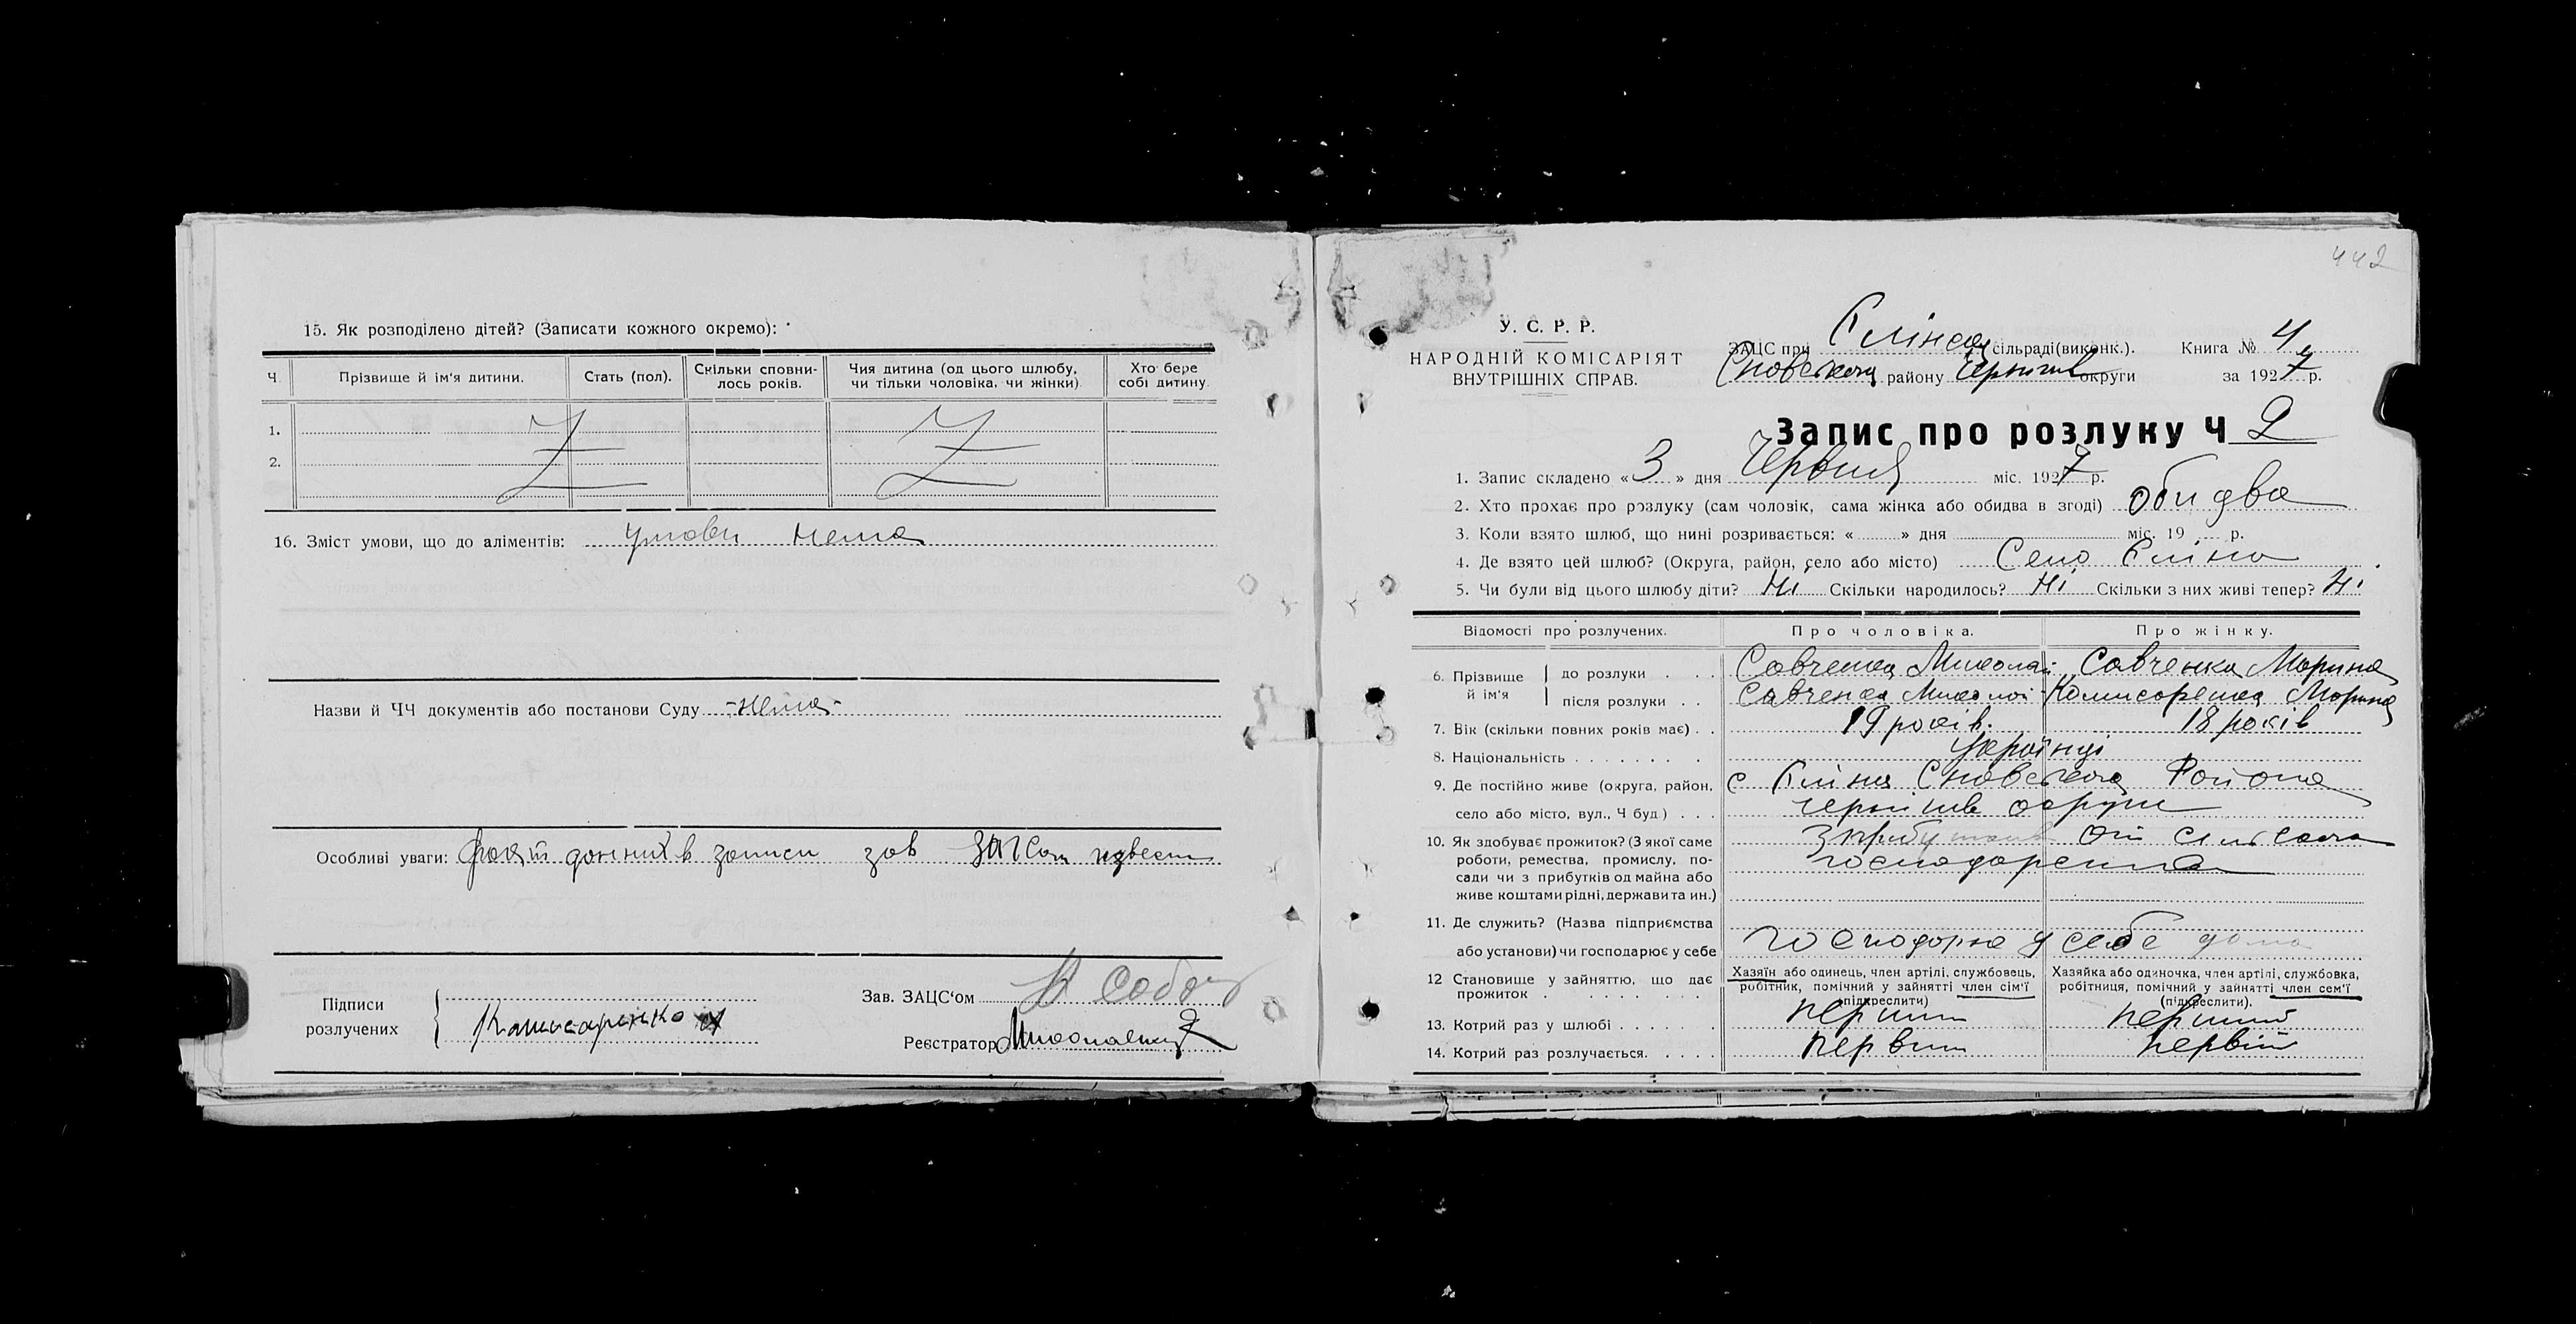 15. Як розподілено дітей? (Записати кожного окремо):
Ч. Прізвище й ім'я дитини. Стать (пол). Скільки сповнилось років. Чия дитина (од цього шлюбу, чи тільки чоловіка, чи жінки) Хто бере собі дитину.
1.
2.
16. Зміст умови, що до аліментів: умови нема
Назви й ЧЧ документів або постанови Суду -нема-
Особливі уваги: факт даних в записи зав ЗАГСом
Підписи розлучених Комисаренко
Зав. ЗАЦС'ом
Реєстратор
442
У. С. Р. Р.
НАРОДНІЙ КОМІСАРІЯТ
ВНУТРІШНІХ СПРАВ.
ЗАЦС при сільраді(виконк.). Книга № 4
Сновського району Черниг округи за 1927 р.
Запис про розлуку Ч 2
1. Запис складено «3» дня Червня міс. 1927 р.
2. Хто прохає про розлуку (сам чоловік, сама жінка або обидва в згоді) обидва
3. Коли взято шлюб, що нині розривається: « » дня міс. 19 р.
4. Де взято цей шлюб? (Округа, район, село або місто) Село
5. Чи були від цього шлюбу діти? Ні Скільки народилось? Ні Скільки з них живі тепер? Ні
Відомості про розлучених. Про чоловіка. Про жінку.
6. Прізвище й ім'я до розлуки Савченка Миколай Савченка Марина
після розлуки Савченка Миколай Комисаренка Марина
7. Вік (скільки повних років має) 19 років. 18 років
8. Національність українці
9. Де постійно живе (округа, район, с Сновського Района
село або місто, вул., Ч буд.) округи
10. Як здобуває прожиток? (З якої саме роботи, ремества, промислу, посади чи з прибутків од майна або живе коштами рідні, держави та ин.) З прибутків от сільского
господарства
11. Де служить? (Назва підприємства
або установи) чи господарює у себе господарює у себе дома
12 Становище у зайняттю, що дає прожиток . Хазяїн або одинець, член артілі, службовець, робітник, помічний у зайнятті член сім'ї (підкреслити) Хазяйка або одиночка, член артілі, службовка, робітниця, помічний у зайнятті член сем'ї (підкреслити).
13. Котрий раз у шлюбі перший перший
14. Котрий раз розлучається. первий первій